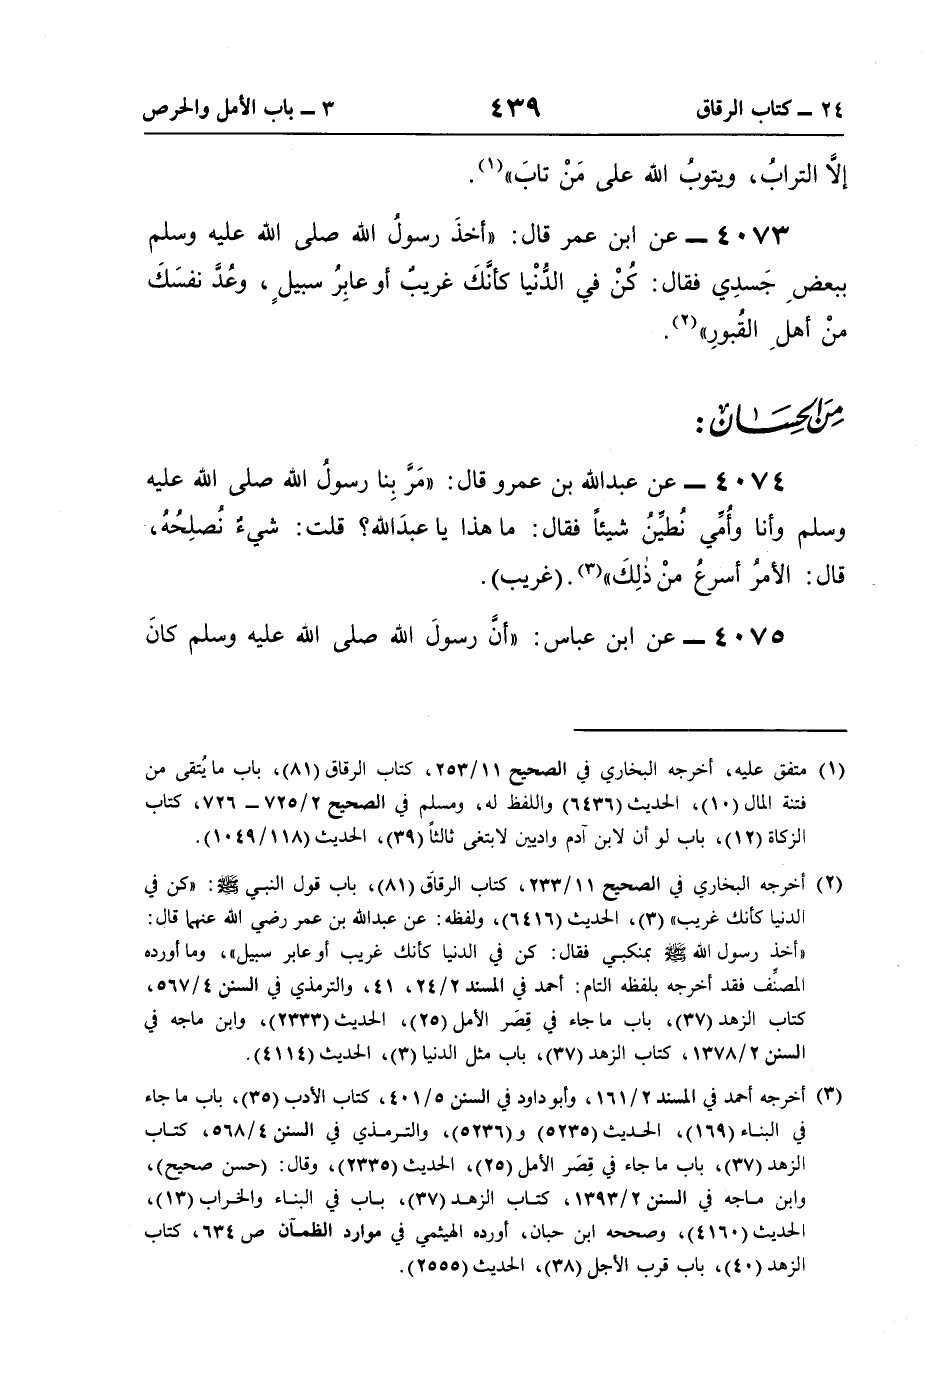 ٢٤ ـ كتاب الرقاق ٤٣٩ ٣ ـ باب الأمل والحرص
إلَّا الترابُ، ويتوبُ الله على مَنْ تابَ»(١).
٤٠٧٣ ـ عن ابن عمر قال: «أخذَ رسولُ الله صلى الله عليه وسلم
ببعضِ جَسدِي فقال: كُنْ في الدُّنْيا كأنَّكَ غريبٌ أو عابِرُ سبيلٍ، وعُدَّ نفسَكَ
منْ أهلِ القُبورِ»(٢).
مِنَ الحِسَان:
٤٠٧٤ ـ عن عبدالله بن عمرو قال: «مَرَّ بِنا رسولُ الله صلى الله عليه
وسلم وأنا وأُمِّي نُطيِّنُ شيئاً فقال: ما هذا يا عبدَالله؟ قلت: شيءٌ نُصلِحُهُ،
قال: الأمرُ أسرعُ منْ ذٰلِكَ»(٣). (غريب).
٤٠٧٥ ـ عن ابن عباس: «أنَّ رسولَ الله صلى الله عليه وسلم كانَ
(١) متفق عليه، أخرجه البخاري في الصحيح ٢٥٣/١١، كتاب الرقاق (٨١)، باب ما يُتقى من
فتنة المال (١٠)، الحديث (٦٤٣٦) واللفظ له، ومسلم في الصحيح ٧٢٥/٢ ـ ٧٢٦، كتاب
الزكاة (١٢)، باب لو أن لابن آدم واديين لابتغى ثالثاً (٣٩)، الحديث (١٠٤٩/١١٨).
(٢) أخرجه البخاري في الصحيح ٢٣٣/١١، كتاب الرقاق (٨١)، باب قول النبي ﷺ: «كن في
الدنيا كأنك غريب» (٣)، الحديث (٦٤١٦)، ولفظه: عن عبدالله بن عمر رضي الله عنهما قال:
«أخذ رسول الله ﷺ بمنكبي فقال: كن في الدنيا كأنك غريب أو عابر سبيل»، وما أورده
المصنِّف فقد أخرجه بلفظه التام: أحمد في المسند ٢٤/٢، ٤١، والترمذي في السنن ٥٦٧/٤،
كتاب الزهد (٣٧)، باب ما جاء في قِصَر الأمل (٢٥)، الحديث (٢٣٣٣)، وابن ماجه في
السنن ١٣٧٨/٢، كتاب الزهد (٣٧)، باب مثل الدنيا (٣)، الحديث (٤١١٤).
(٣) أخرجه أحمد في المسند ١٦١/٢، وأبو داود في السنن ٤٠١/٥، كتاب الأدب (٣٥)، باب ما جاء
في البناء (١٦٩)، الحديث (٥٢٣٥) و(٥٢٣٦)، والترمذي في السنن ٥٦٨/٤، كتاب
الزهد (٣٧)، باب ما جاء في قِصَر الأمل (٢٥)، الحديث (٢٣٣٥)، وقال: (حسن صحيح)،
وابن ماجه في السنن ١٣٩٣/٢، كتاب الزهد (٣٧)، باب في البناء والخراب (١٣)،
الحديث (٤١٦٠)، وصححه ابن حبان، أورده الهيثمي في موارد الظمآن ص ٦٣٤، كتاب
الزهد (٤٠)، باب قرب الأجل (٣٨)، الحديث (٢٥٥٥).